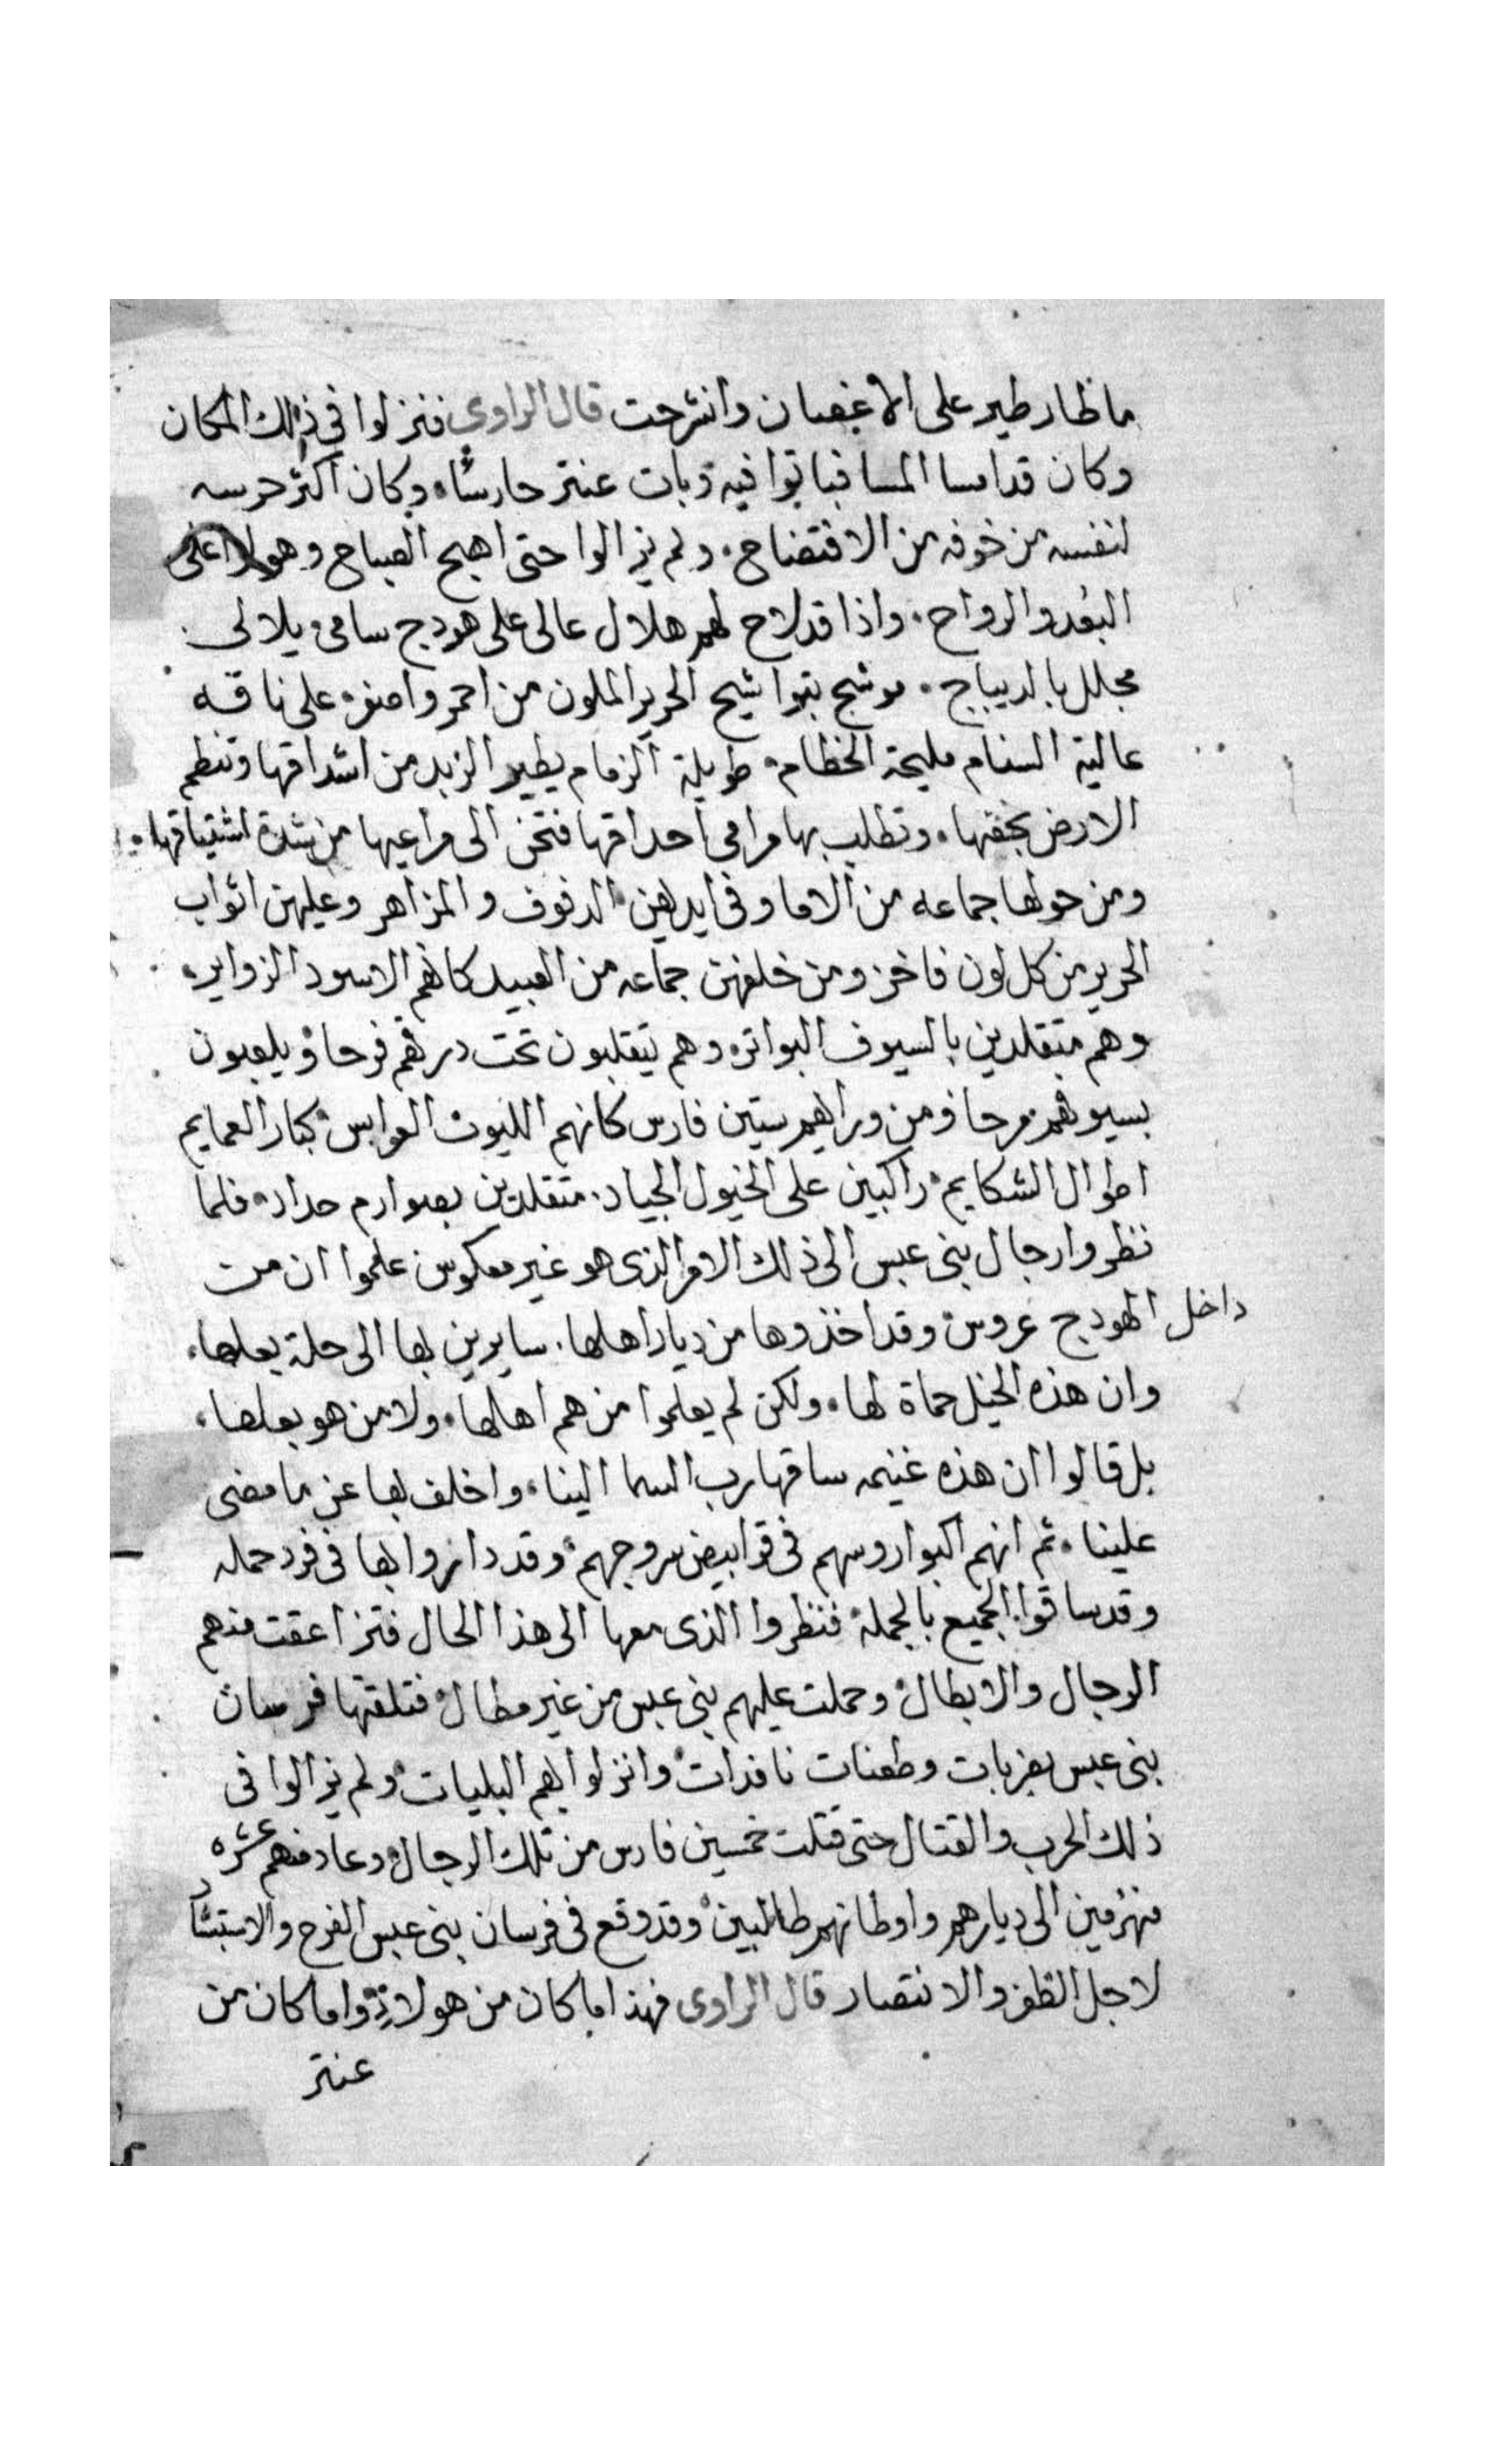 ماظار طير على الاغصان وانشرحت قال الراوى فنزلوا فى ذلك المكان
وكان قد امسا المسا فباتوا فيه وبات عنتر حارسًا، وكان اكثر حرسه
لنفسه من خوفه من الافتضاح، ولم يزالوا حتى اصبح الصباح وهو على
البعد والرواح، واذا قد لاح لهم هلال عالى على هودج سامى يلالى
مجلل بالديباج، موشح بتواشيح الحرير الملون من احمر واصفر، على ناقه
عالية السنام مليحة الخطام، طويلة الزمام يطير الزبد من اشداقها وتنطم
الارض بخفها، وتطلب بها مرامى احداقها فتحن الى مراعيها من شدة اشتياقها،
ومن حولها جماعه من الاما وفى ايديهن الدفوف والمزاهر وعليهن اثواب
الحرير من كل لون فاخر ومن خلفهن جماعه من العبيد كانهم الاسود الزواير،
وهم متقلدين بالسيوف البواتر، وهم يتقلبون تحت درقهم فرحا ويلعبون
بسيوفهم مرحا ومن ورايهم ستين فارس كانهم الليوث العوابس كبار العمايم
اطوال الشكايم، راكبين على الخيول الجياد، متقلدين بصوارم حداد، فلما
نظروا رجال بنى عبس الى ذلك الامر الذى هو غير معكوس علموا ان من
داخل الهودج عروس وقد اخذوها من ديار اهلها، سايرين بها الى حلة بعلها،
وان هذه الخيل حماة لها، ولكن لم يعلموا من هم اهلها، ولا من هو بعلها،
بل قالوا ان هذه غنيمه ساقها رب السما الينا، واخلف بها عن ما مضى
علينا، ثم انهم اكبوا روسهم فى قرابيص سروجهم، وقد داروا بها فى فرد حمله
وقد ساقوا الجميع بالجملة، فنظروا الذى معها الى هذا الحال فتزاعقت منهم
الرجال والابطال، وحملت عليهم بنى عبس من غير مطال، فتلقتها فرسان
بنى عبس بضربات وطعنات نافدات، وانزلوا بهم البليات، ولم يزالوا فى
ذلك الحرب والقتال حتى قتلت خمسين فارس من تلك الرجال، وعاد منهم عشره
منهزمين الى ديارهم واوطانهم طالبين، وقد وقع فى فرسان بنى عبس الفرح والاستبشار
لاجل الظفر والانتصار قال الراوى فهذا ما كان من هولاء، واما كان من
عنتر